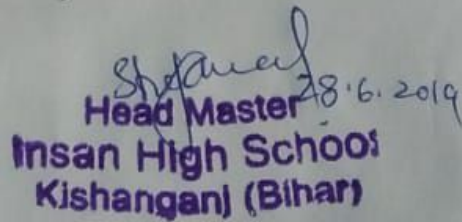 28.6.2019
Head Master
Insan High School
Kishanganj (Bihar)